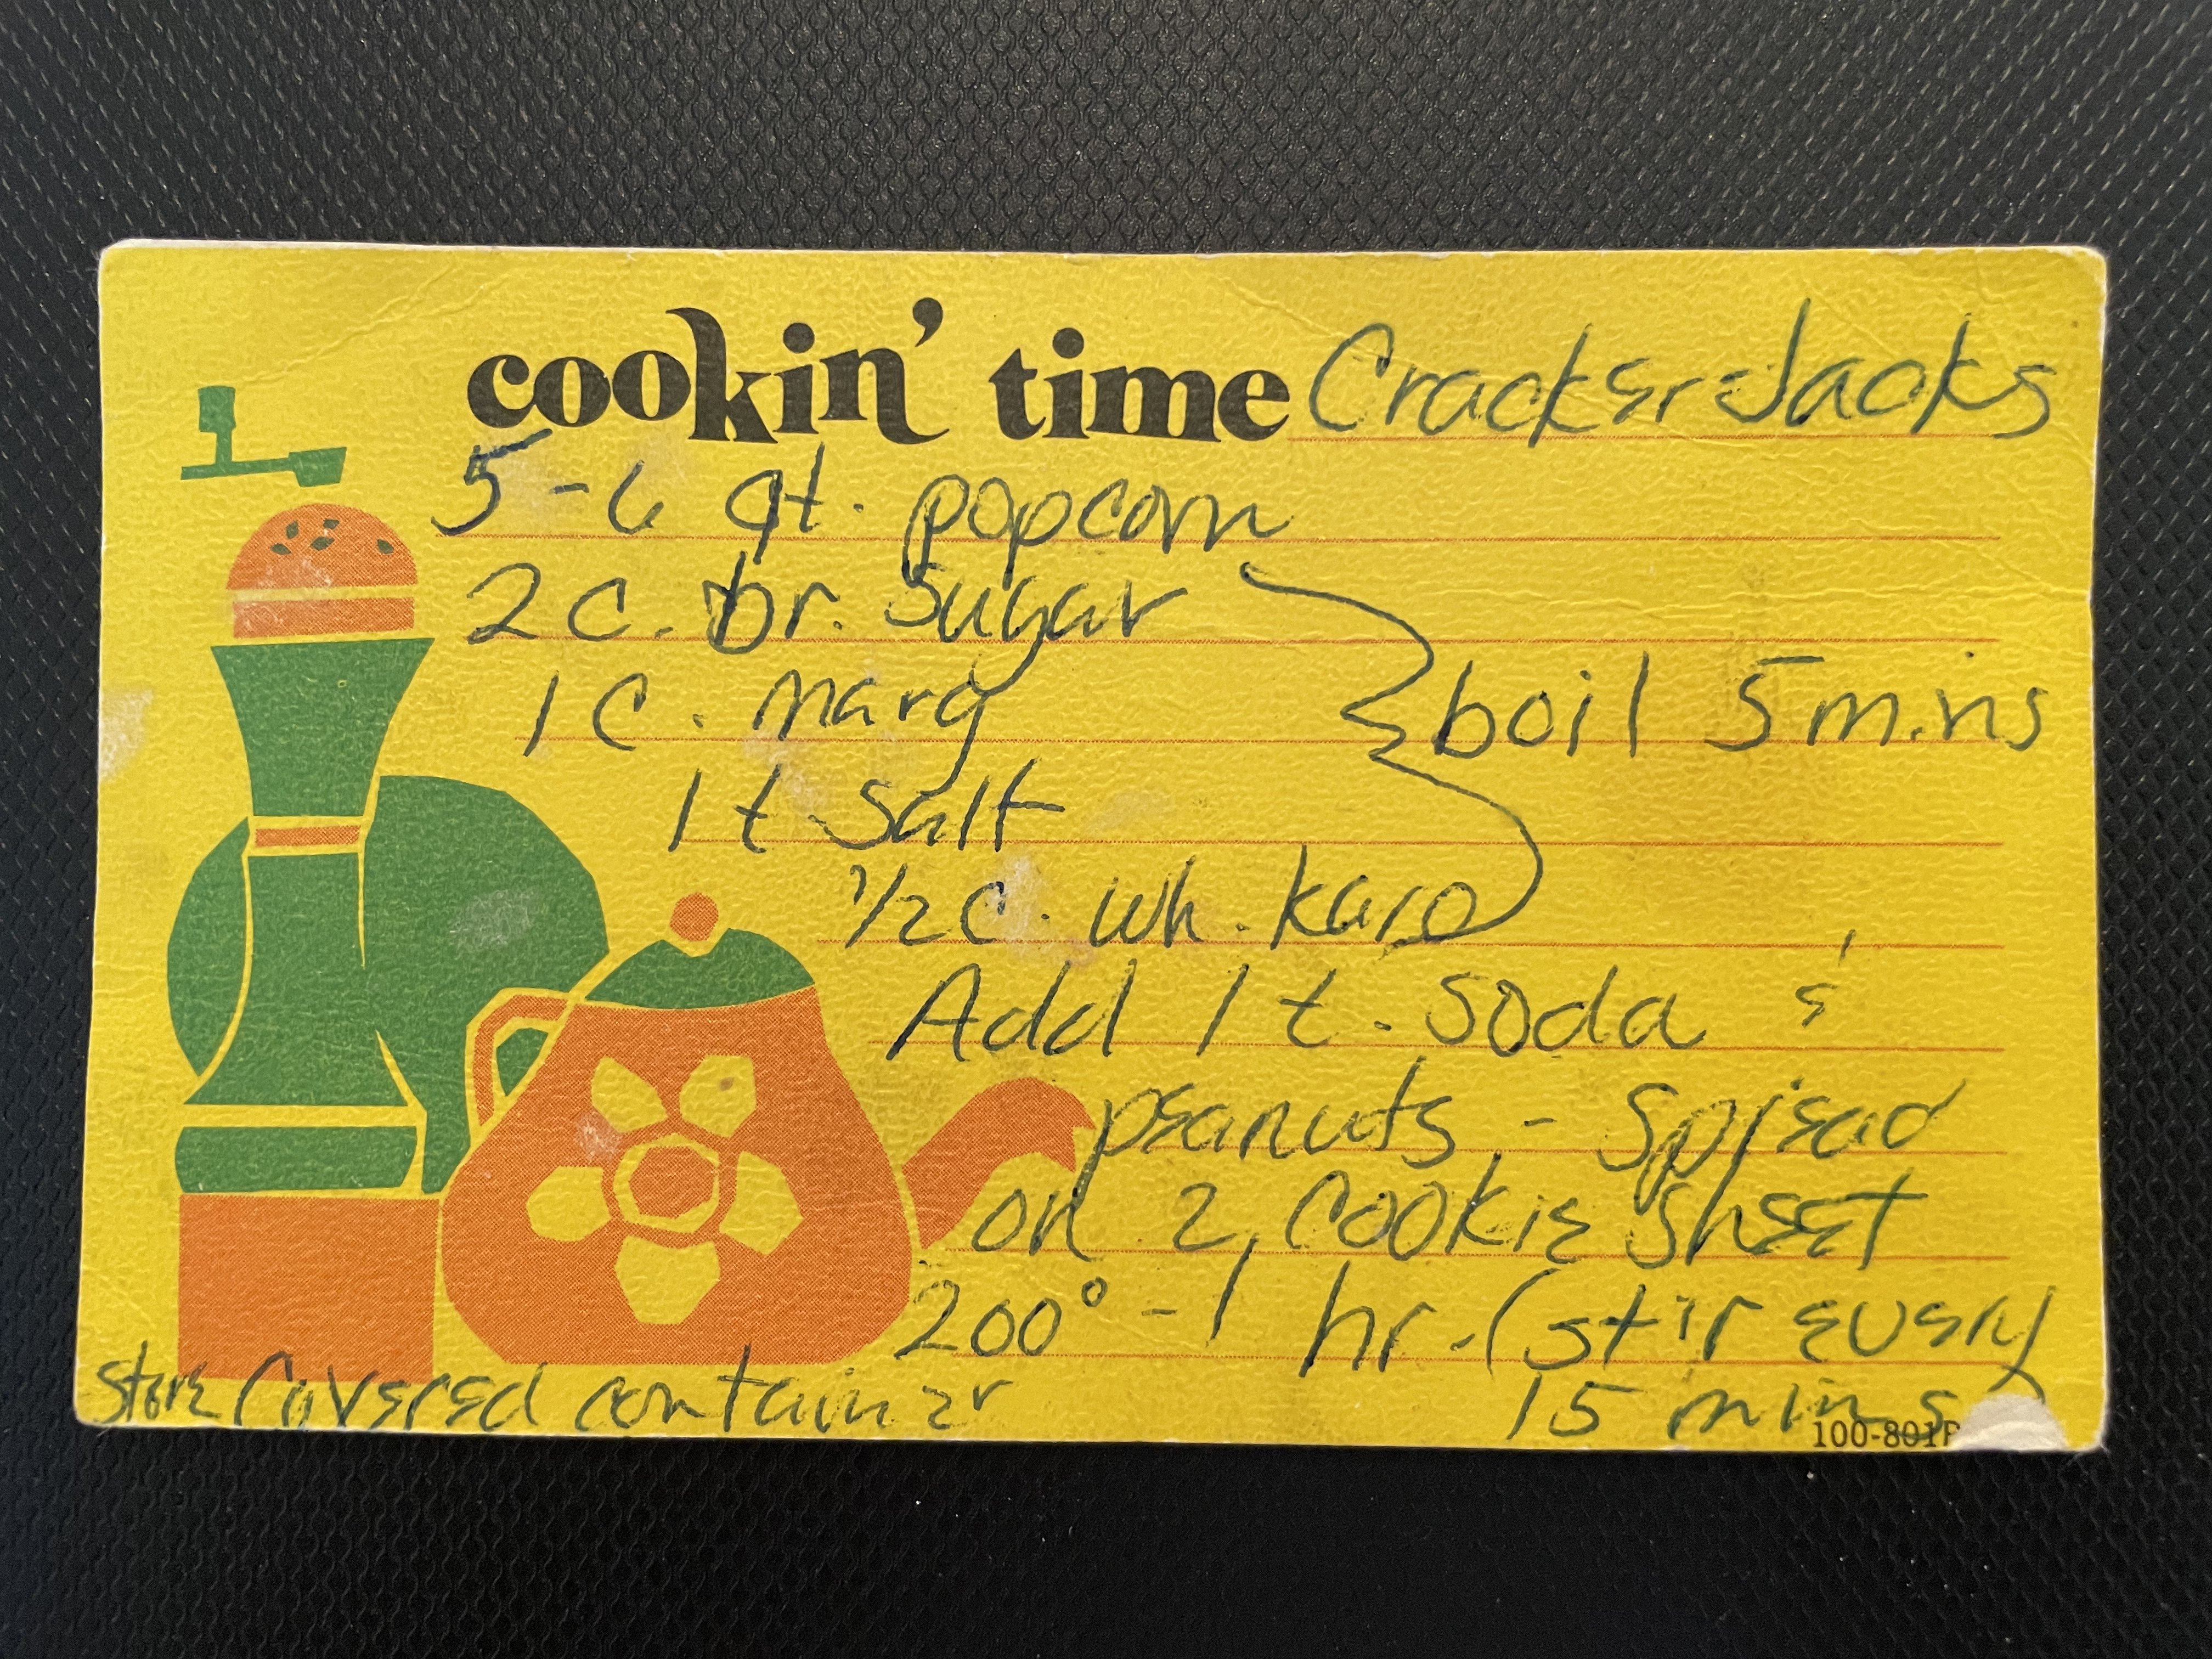 cookin' time Cracker Jacks
5-6 qt. popcorn
2 c. br. sugar
1 c. marg
boil 5 mins
1 t salt
1/2 c. wh. karo
Add 1 t. soda &
peanuts - spread
on 2 cookie sheet
200° - 1 hr. (stir every
15 mins)
store covered container
100-801